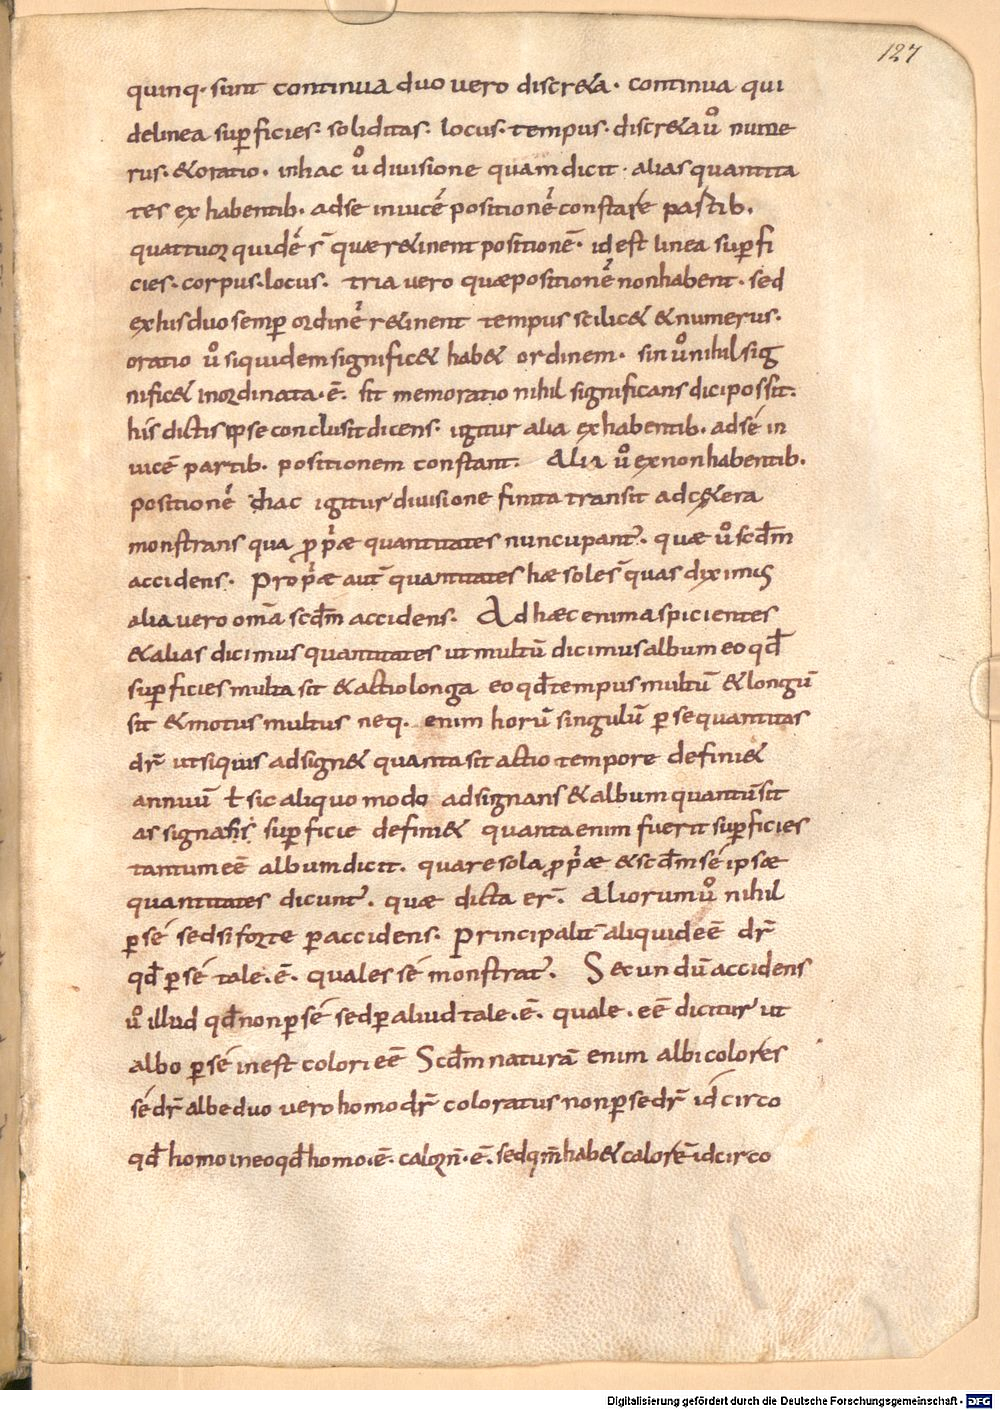 127
quinq· sunt continua duo vero discr&a· continua qui
delinea sup̱ficies· soliditas· locus· tempus· discr&a uͦ nume
rus· & oratio· inhac uͦ diuisione quam dicit· alias quantita
tes ex habentib· adse inuicē positionē constare partib·
quattuor quidē s̄ quae r&inent positionē· id est linea sup̱fi
cies· corpus· locus· tria vero quae positionē non habent· sed
ex his duo semp̱ ordinē r&inent tempus scilic& & numerus·
oratio uͦ siquidem signific& hab& ordinem· sin uͦ nihil sig
nific& inordinata·ē· sit memoratio nihil significans dici possit·
his dictis ipse conclusit dicens· igitur alia ex habentib· ad sé in
uicē partib· positionem constant· Alia uͦ ex non habentib·
positionē hac igitur diuisione finita transit ad c&era
monstrans qua p̱ pͥae quantitates nuncupant᷑· quae uͦ scd̄m
accidens· Pro pͥae aut̄ quantitates hae soles̄ quas diximus
alia vero om̄a scd̄m accidens· Ad haec enim aspicientes
& alias dicimus quantitates ut multū dicimus album eo qd̄
sup̱ficies multa sit & actio longa eo qd̄ tempus multū & longū
sit & motus multus neq· enim horū singulū p̱ se quantitas
dr̄ ut siquis adsign& quanta sit actio tempore defini&
annuū ł sic aliquo modo adsignans & album quantū sit
assignans sup̱ficie defini& quanta enim fuerit sup̱ficies
tantum eē album dicit· quare sola p̱ pͥae & scd̄m sé ipsae
quantitates dicunt᷑· quae dicta er̄· Aliorum uͦ nihil
p̱ sé sed si forte p̱ accidens· Principalit̄ aliquid eē dr̄
qd̄ p̱ sé tale·ē· quales sé monstrat᷑· Secundū accidens
uͦ illud qd̄ non p̱ sé sed p̱ aliud tale·ē· quale· eē dicitur ut
albo p̱ sé inest colori eē Scd̄m naturā enim albi colores
sé dr̄ albeduo vero homo dr̄ coloratus non p̱ se dr̄ id circo
qd̄ homo in eo qd̄ homo·ē· calor n̄·ē· sed qm̄ hab& calorē idcirco
Digitalisierung gefördert durch die Deutsche Forschungsgemeinschaft · DFG